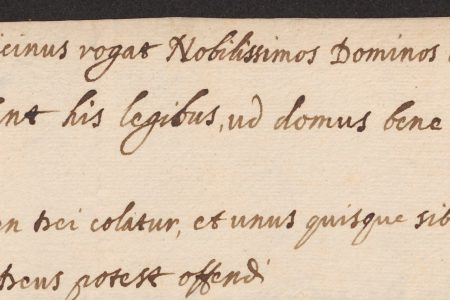 icinus rogat Nobilissimos Dominos
int his legibus, ud domus bene
en trei colatur, et unus quisque sib
treus potest offendi